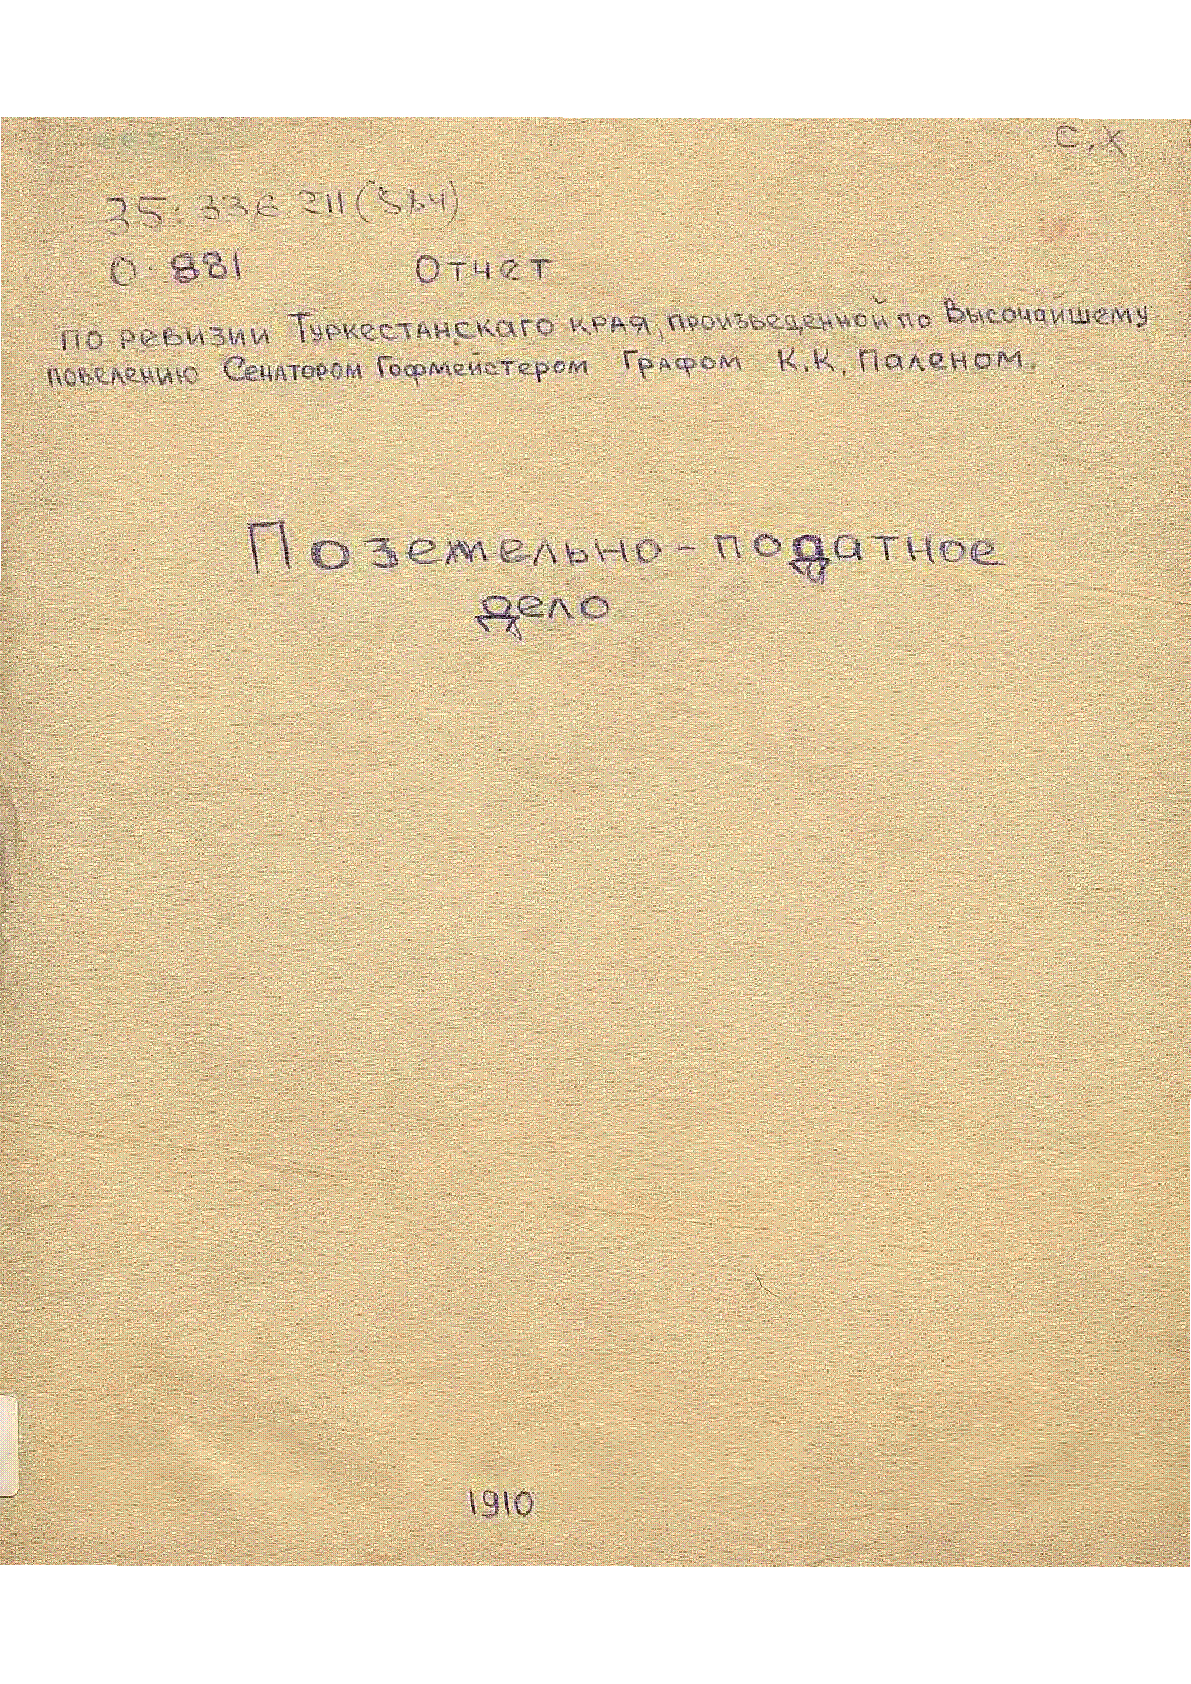 С.Х
35:336.211(584)
О-881 Отчет
по ревизии Туркестанскаго края, произведенной по Высочайшему
повелению Сенатором Гофмейстером Графом К.К. Паленом.
Поземельно-податное
дело
1910